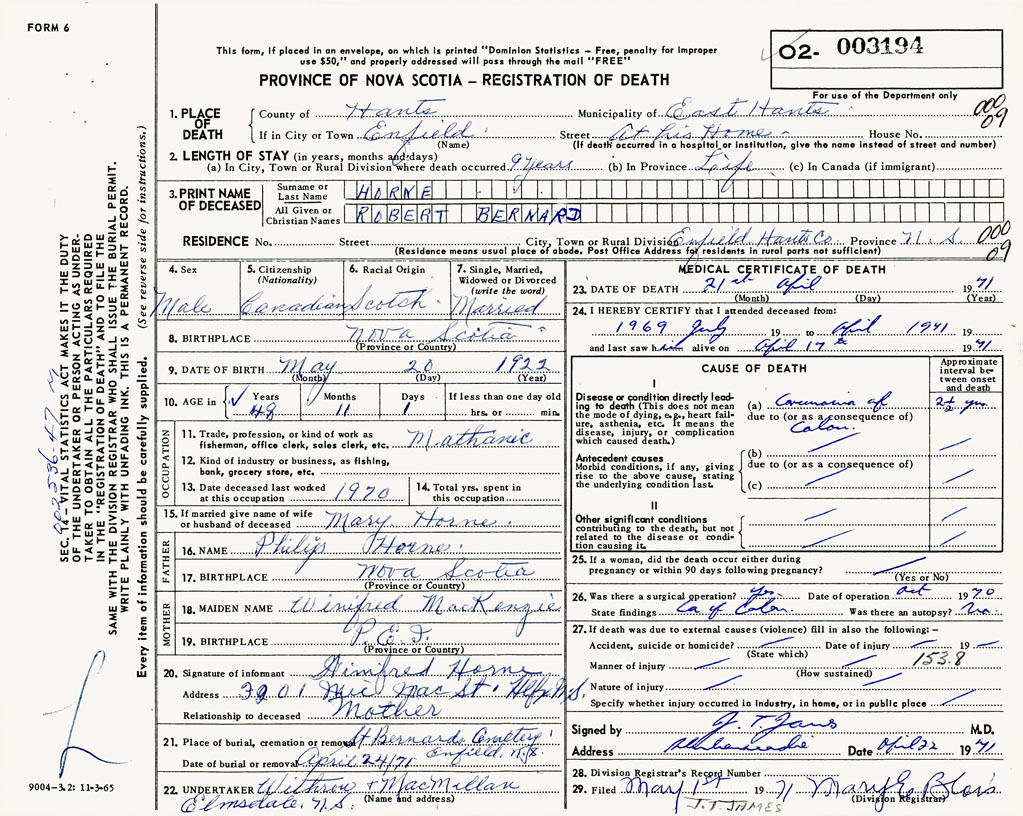 FORM 6
This form, if placed in an envelope, on which is printed "Dominion Statistics – Free, penalty for improper
use $50," and properly addressed will pass through the mail "FREE"
PROVINCE OF NOVA SCOTIA – REGISTRATION OF DEATH
02- 003194
For use of the Department only
1. PLACE OF DEATH County of Hants Municipality of East Hants 000
If in City or Town Enfield (Name) Street At his Home House No. 09
(If death occurred in a hospital or institution, give the name instead of street and number)
2. LENGTH OF STAY (in years, months and days)
(a) In City, Town or Rural Division where death occurred 9 years (b) In Province Life (c) In Canada (if immigrant)
3. PRINT NAME OF DECEASED
Surname or Last Name HORNE
All Given or Christian Names ROBERT BERNARD
RESIDENCE No. Street City, Town or Rural Division Enfield Hants Co Province N.S. 000 09
(Residence means usual place of abode. Post Office Address for residents in rural parts not sufficient)
4. Sex Male
5. Citizenship (Nationality) Canadian
6. Racial Origin Scotch
7. Single, Married, Widowed or Divorced (write the word) Married
8. BIRTHPLACE Nova Scotia
(Province or Country)
9. DATE OF BIRTH May 20 1922
(Month) (Day) (Year)
10. AGE in Years 48 Months 11 Days 1 If less than one day old hrs. or min.
OCCUPATION
11. Trade, profession, or kind of work as
fisherman, office clerk, sales clerk, etc. Mathanic
12. Kind of industry or business, as fishing,
bank, grocery store, etc.
13. Date deceased last worked at this occupation 1970
14. Total yrs. spent in this occupation
15. If married give name of wife or husband of deceased Mary Horne
FATHER
16. NAME Philip Horne
17. BIRTHPLACE Nova Scotia
(Province or Country)
MOTHER
18. MAIDEN NAME Winifred MacKenzie
19. BIRTHPLACE P.E.I.
(Province or Country)
20. Signature of informant Winifred Horne
Address 3201 Mic Mac St. Hlfx N.S.
Relationship to deceased Mother
21. Place of burial, cremation or removal St Bernards Cemetery Enfield, N.S.
Date of burial or removal April 24/71
22. UNDERTAKER Withrow & MacMillan
Elmsdale, N.S. (Name and address)
MEDICAL CERTIFICATE OF DEATH
23. DATE OF DEATH 21st April 1971
(Month) (Day) (Year)
24. I HEREBY CERTIFY that I attended deceased from:
1969 July 19 to April 1971 19
and last saw him alive on April 17th 1971
CAUSE OF DEATH
Approximate interval between onset and death
I
Disease or condition directly leading to death (This does not mean
the mode of dying, e.g., heart failure, asthenia, etc. It means the
disease, injury, or complication which caused death.)
(a) Carcinoma of 2+ yrs
due to (or as a consequence of)
Colon.
Antecedent causes
Morbid conditions, if any, giving
rise to the above cause, stating
the underlying condition last.
(b)
due to (or as a consequence of)
(c)
II
Other significant conditions
contributing to the death, but not
related to the disease or condition causing it.
25. If a woman, did the death occur either during
pregnancy or within 90 days following pregnancy?
(Yes or No)
26. Was there a surgical operation? Yes Date of operation Oct 1970
State findings Ca of Colon. Was there an autopsy? No.
27. If death was due to external causes (violence) fill in also the following: –
Accident, suicide or homicide? Date of injury 19
(State which) 153.8
Manner of injury
(How sustained)
Nature of injury
Specify whether injury occurred in industry, in home, or in public place
Signed by J. T. James M.D.
Address Shubenacadie Date April 22 1971
28. Division Registrar's Record Number
29. Filed May 1st 1971 Mary E Blois
(Division Registrar)
J.T. JAMES
SEC. 14 – VITAL STATISTICS ACT MAKES IT THE DUTY
OF THE UNDERTAKER OR PERSON ACTING AS UNDER-
TAKER TO OBTAIN ALL THE PARTICULARS REQUIRED
IN THE "REGISTRATION OF DEATH" AND TO FILE THE
SAME WITH THE DIVISION REGISTRAR WHO SHALL ISSUE THE BURIAL PERMIT.
WRITE PLAINLY WITH UNFADING INK. THIS IS A PERMANENT RECORD.
Every item of information should be carefully supplied. (See reverse side for instructions.)
9004-3.2: 11-3-65